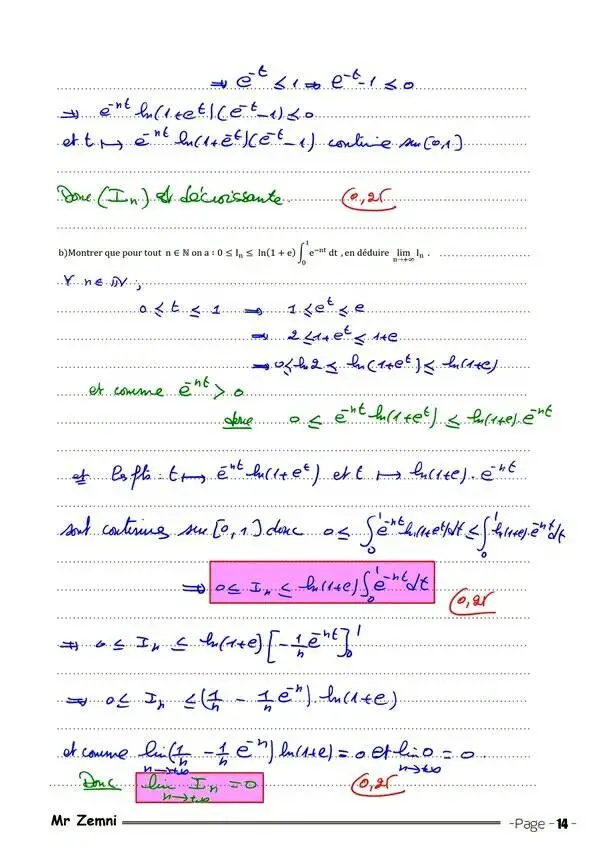 ⇒ e^{-t} ≤ 1 ⇒ e^{-t} - 1 ≤ 0
⇒ e^{-nt} ln(1+e^t)(e^{-t}-1) ≤ 0
et t ↦ e^{-nt} ln(1+e^{-t})(e^{-t}-1) continue sur [0,1]
Donc (I_n) est décroissante. 0,25
b)Montrer que pour tout n ∈ ℕ on a : 0 ≤ I_n ≤ ln(1 + e) ∫_0^1 e^{-nt} dt , en déduire lim_{n→+∞} I_n .
∀ n ∈ ℕ ;
0 ≤ t ≤ 1 ⇒ 1 ≤ e^t ≤ e
⇒ 2 ≤ 1+e^t ≤ 1+e
⇒ 0 ≤ ln2 ≤ ln(1+e^t) ≤ ln(1+e)
et comme e^{-nt} > 0
donc 0 ≤ e^{-nt} ln(1+e^t) ≤ ln(1+e).e^{-nt}
et les fts : t ↦ e^{-nt} ln(1+e^t) et t ↦ ln(1+e).e^{-nt}
sont continues sur [0,1] donc 0 ≤ ∫_0^1 e^{-nt} ln(1+e^t)dt ≤ ∫_0^1 ln(1+e).e^{-nt} dt
⇒ 0 ≤ I_n ≤ ln(1+e) ∫_0^1 e^{-nt} dt 0,25
⇒ 0 ≤ I_n ≤ ln(1+e) [-1/n e^{-nt}]_0^1
⇒ 0 ≤ I_n ≤ (1/n - 1/n e^{-n}).ln(1+e)
et comme lim_{n→+∞} (1/n - 1/n e^{-n}) ln(1+e) = 0 et lim_{n→+∞} 0 = 0
Donc lim_{n→+∞} I_n = 0 0,25
Mr Zemni -Page - 14 -